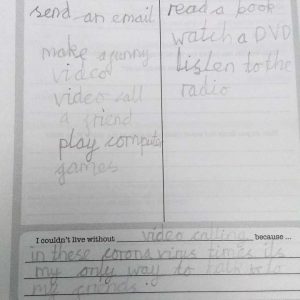 send an email
make a funny
video
video call
a friend
play computer
games
read a book
watch a DVD
listen to the
radio
I couldn't live without video calling because ...
in these corona virus times it's
my only way to talk to
my friends.